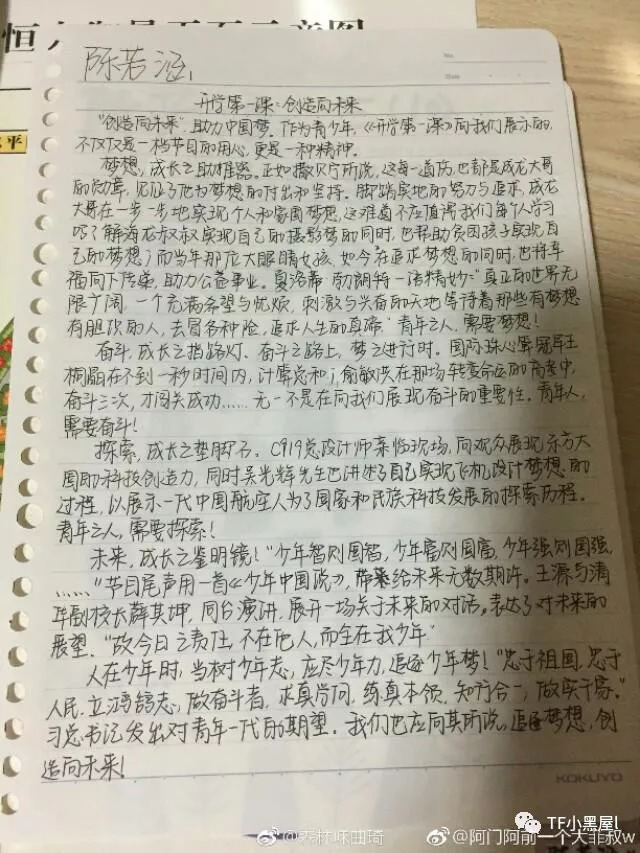 陈若涵
No.
开学第一课：创造向未来
"创造向未来"，助力中国梦。作为青少年，《开学第一课》向我们展示的，
不仅仅是一档节目的用心，更是一种精神。
梦想，成长之助推器。正如撒贝宁所说，这每一道伤，也都是成龙大哥
的勋章，见证了他为梦想的付出和坚持。脚踏实地的努力与追求，成龙
大哥在一步一步地实现个人和家国梦想，这难道不应值得我们每个人学习
吗？解海龙叔叔实现自己的摄影梦的同时，也帮助贫困孩子实现自
己的梦想，而当年那庞大眼睛女孩，如今在追求梦想的同时，也将幸
福向下传递，助力公益事业。夏洛蒂·勃朗特一语精妙："真正的世界无
限广阔，一个充满希望与忧烦，刺激与兴奋的天地等待着那些有梦想
有胆识的人，去冒各种险，追求人生的真谛。"青年之人，需要梦想！
奋斗，成长之指路灯。奋斗之路上，梦之进行时。国际珠心算冠军王
桐晶在不到一秒时间内，计算总和；俞敏洪在那场转变命运的高考中，
奋斗三次，才闯关成功……无一不是在向我们展现奋斗的重要性。青年人，
需要奋斗！
探索，成长之垫脚石。C919总设计师亲临现场，向观众展现东方大
国的科技创造力，同时吴光辉先生也讲述了自己实现飞机设计梦想的
过程，以展示一代中国航空人为了国家和民族科技发展的探索历程。
青年之人，需要探索！
未来，成长之鉴明镜！"少年智则国智，少年富则国富，少年强则国强，
……"节目尾声用一首《少年中国说》，带给未来无数期许。王源与清
华副校长薛其坤，同台演讲，展开一场关于未来的对话。表达了对未来的
展望。"故今日之责任，不在他人，而全在我少年"
人在少年时，当树少年志，应尽少年力，追逐少年梦！"忠于祖国，忠于
人民，立鸿鹄志，做奋斗者，求真学问，练真本领，知行合一，做实干家。"
习总书记发出对青年一代的期望。我们也应向其所说，追逐梦想，创
造向未来！
KOKUYO
TF小黑屋
@阿门阿前一个大菲叔w